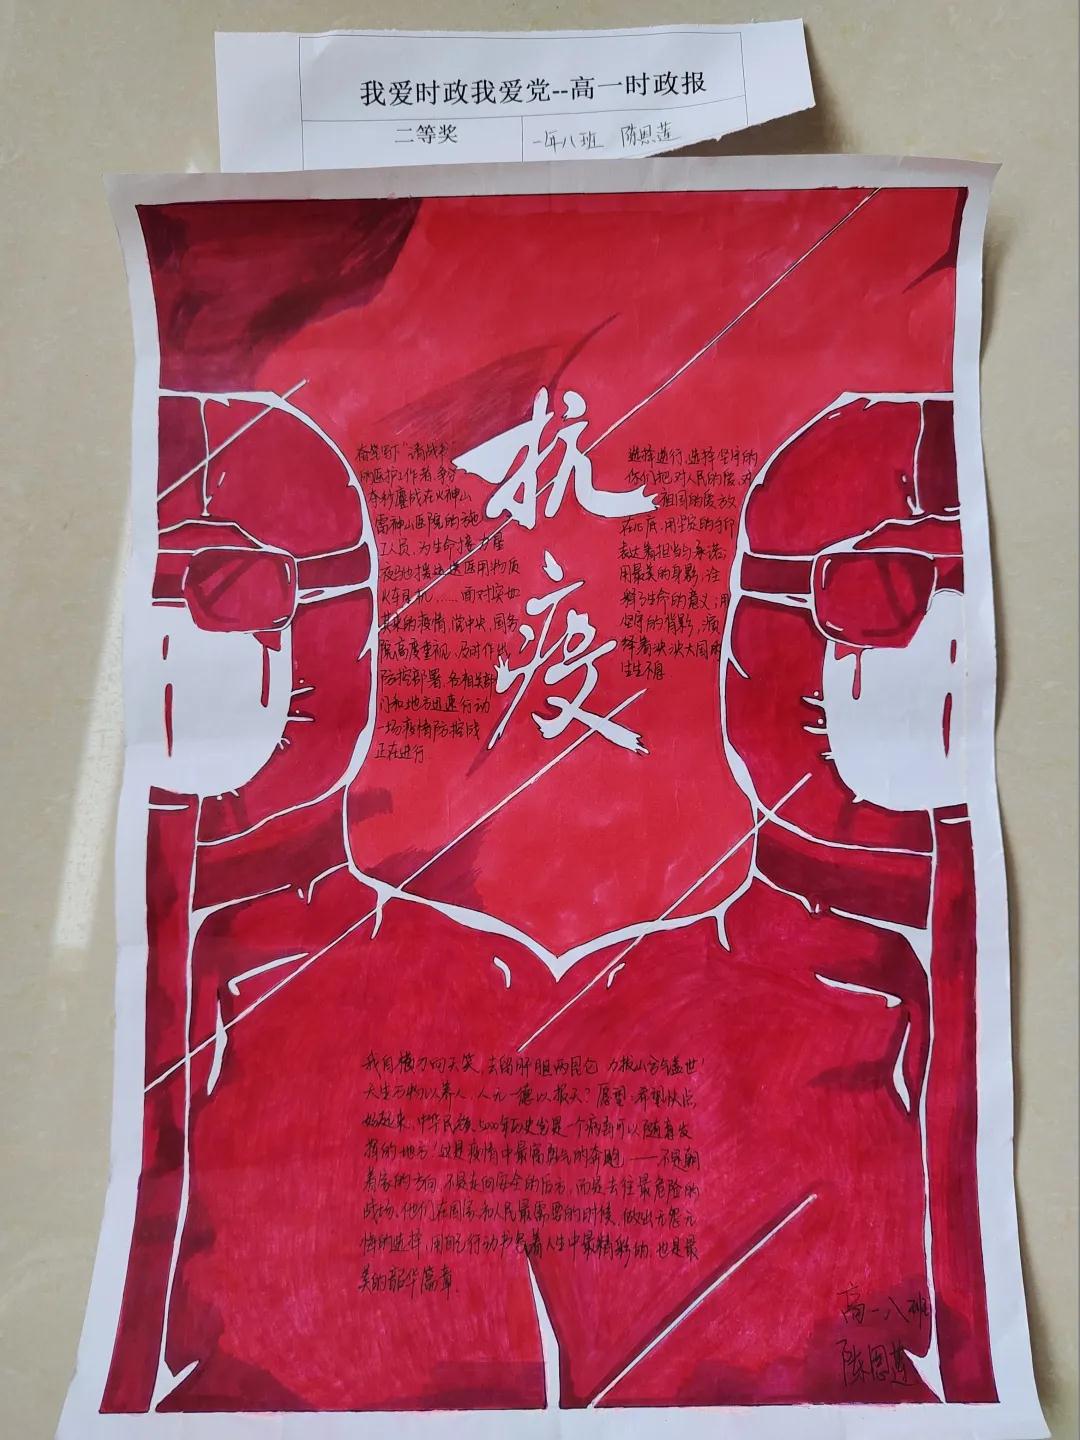 我爱时政我爱党--高一时政报
二等奖
一年八班 陈恩莲
抗
疫
奋笔写下“请战书”
的医护工作者,争分
夺秒鏖战在火神山
雷神山医院的施
工人员,为生命接力星
夜驰援运送医用物质
火车司机……面对突如
其来的疫情,党中央,国务
院高度重视,及时作出
防控部署,各相关部
门和地方迅速行动
一场疫情防控战
正在进行
选择逆行,选择坚守的
你们把对人民的爱,对
祖国的爱放
在心底,用坚定的手印
表达着担当与承诺;
用最美的身影,诠
释了生命的意义;用
坚守的背影,演
绎着泱泱大国的
生生不息
我自横刀向天笑,去留肝胆两昆仑 力拔山兮气盖世!
天生万物以养人,人无一德以报天?愿望:希望快点
好起来,中华民族5000年历史岂是一个病毒可以随意发
挥的地方!这是疫情中最富勇气的奔跑——不是朝
着家的方向,不是走向安全的后方,而是去往最危险的
战场。他们在国家和人民最需要的时候,做出无怨无
悔的选择,用自己行动书写着人生中最精彩的,也是最
美的韶华篇章.
高一八班
陈恩莲